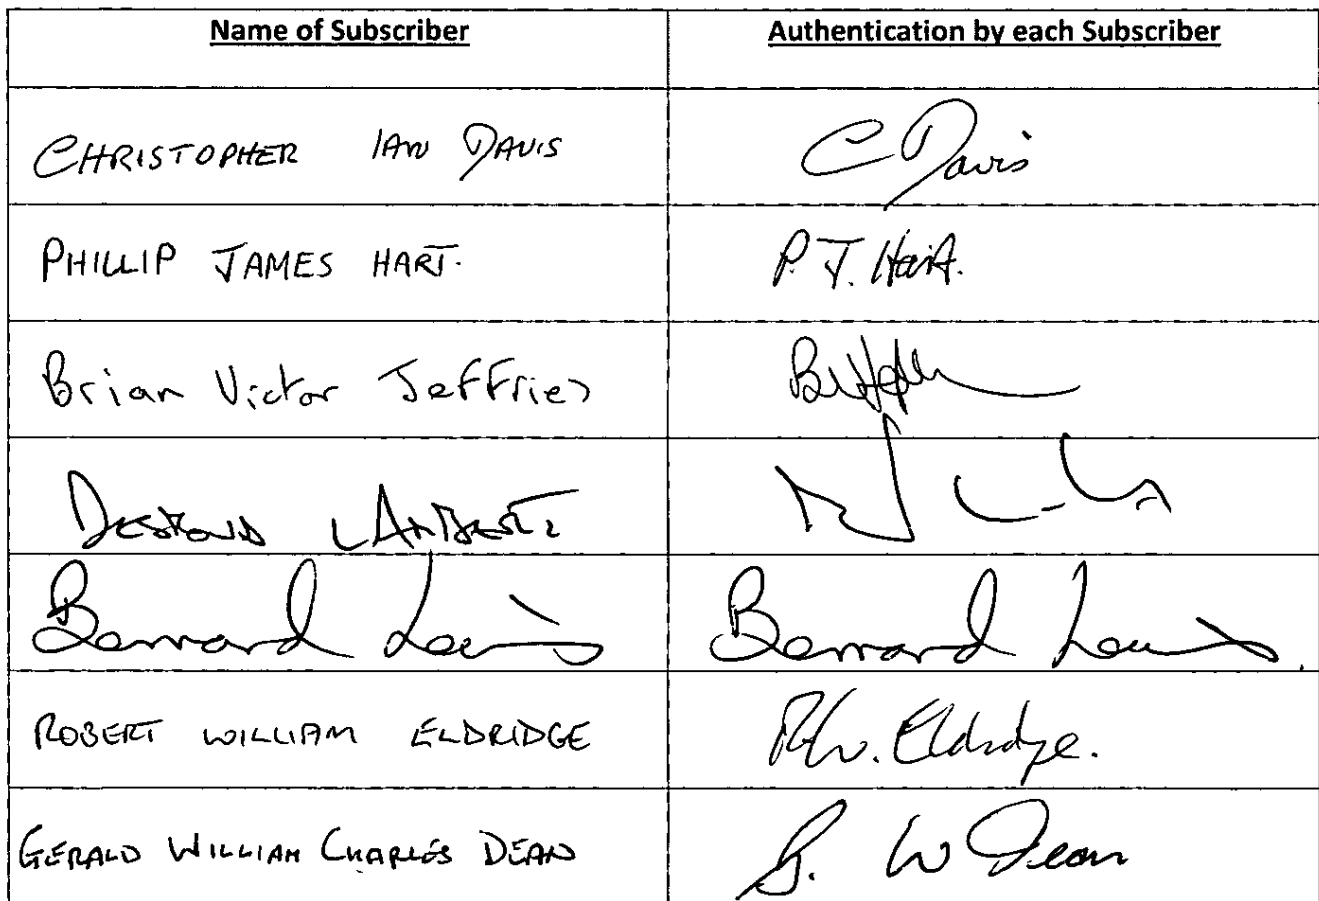 Name of Subscriber Authentication by each Subscriber
CHRISTOPHER IAN DAVIS C Davis
PHILLIP JAMES HART. P. J. Hart.
Brian Victor Jeffries
DESMOND LAMBERT
Bernard Lewis Bernard Lewis.
ROBERT WILLIAM ELDRIDGE R.W. Eldridge.
GERALD WILLIAM CHARLES DEAN G. W Dean